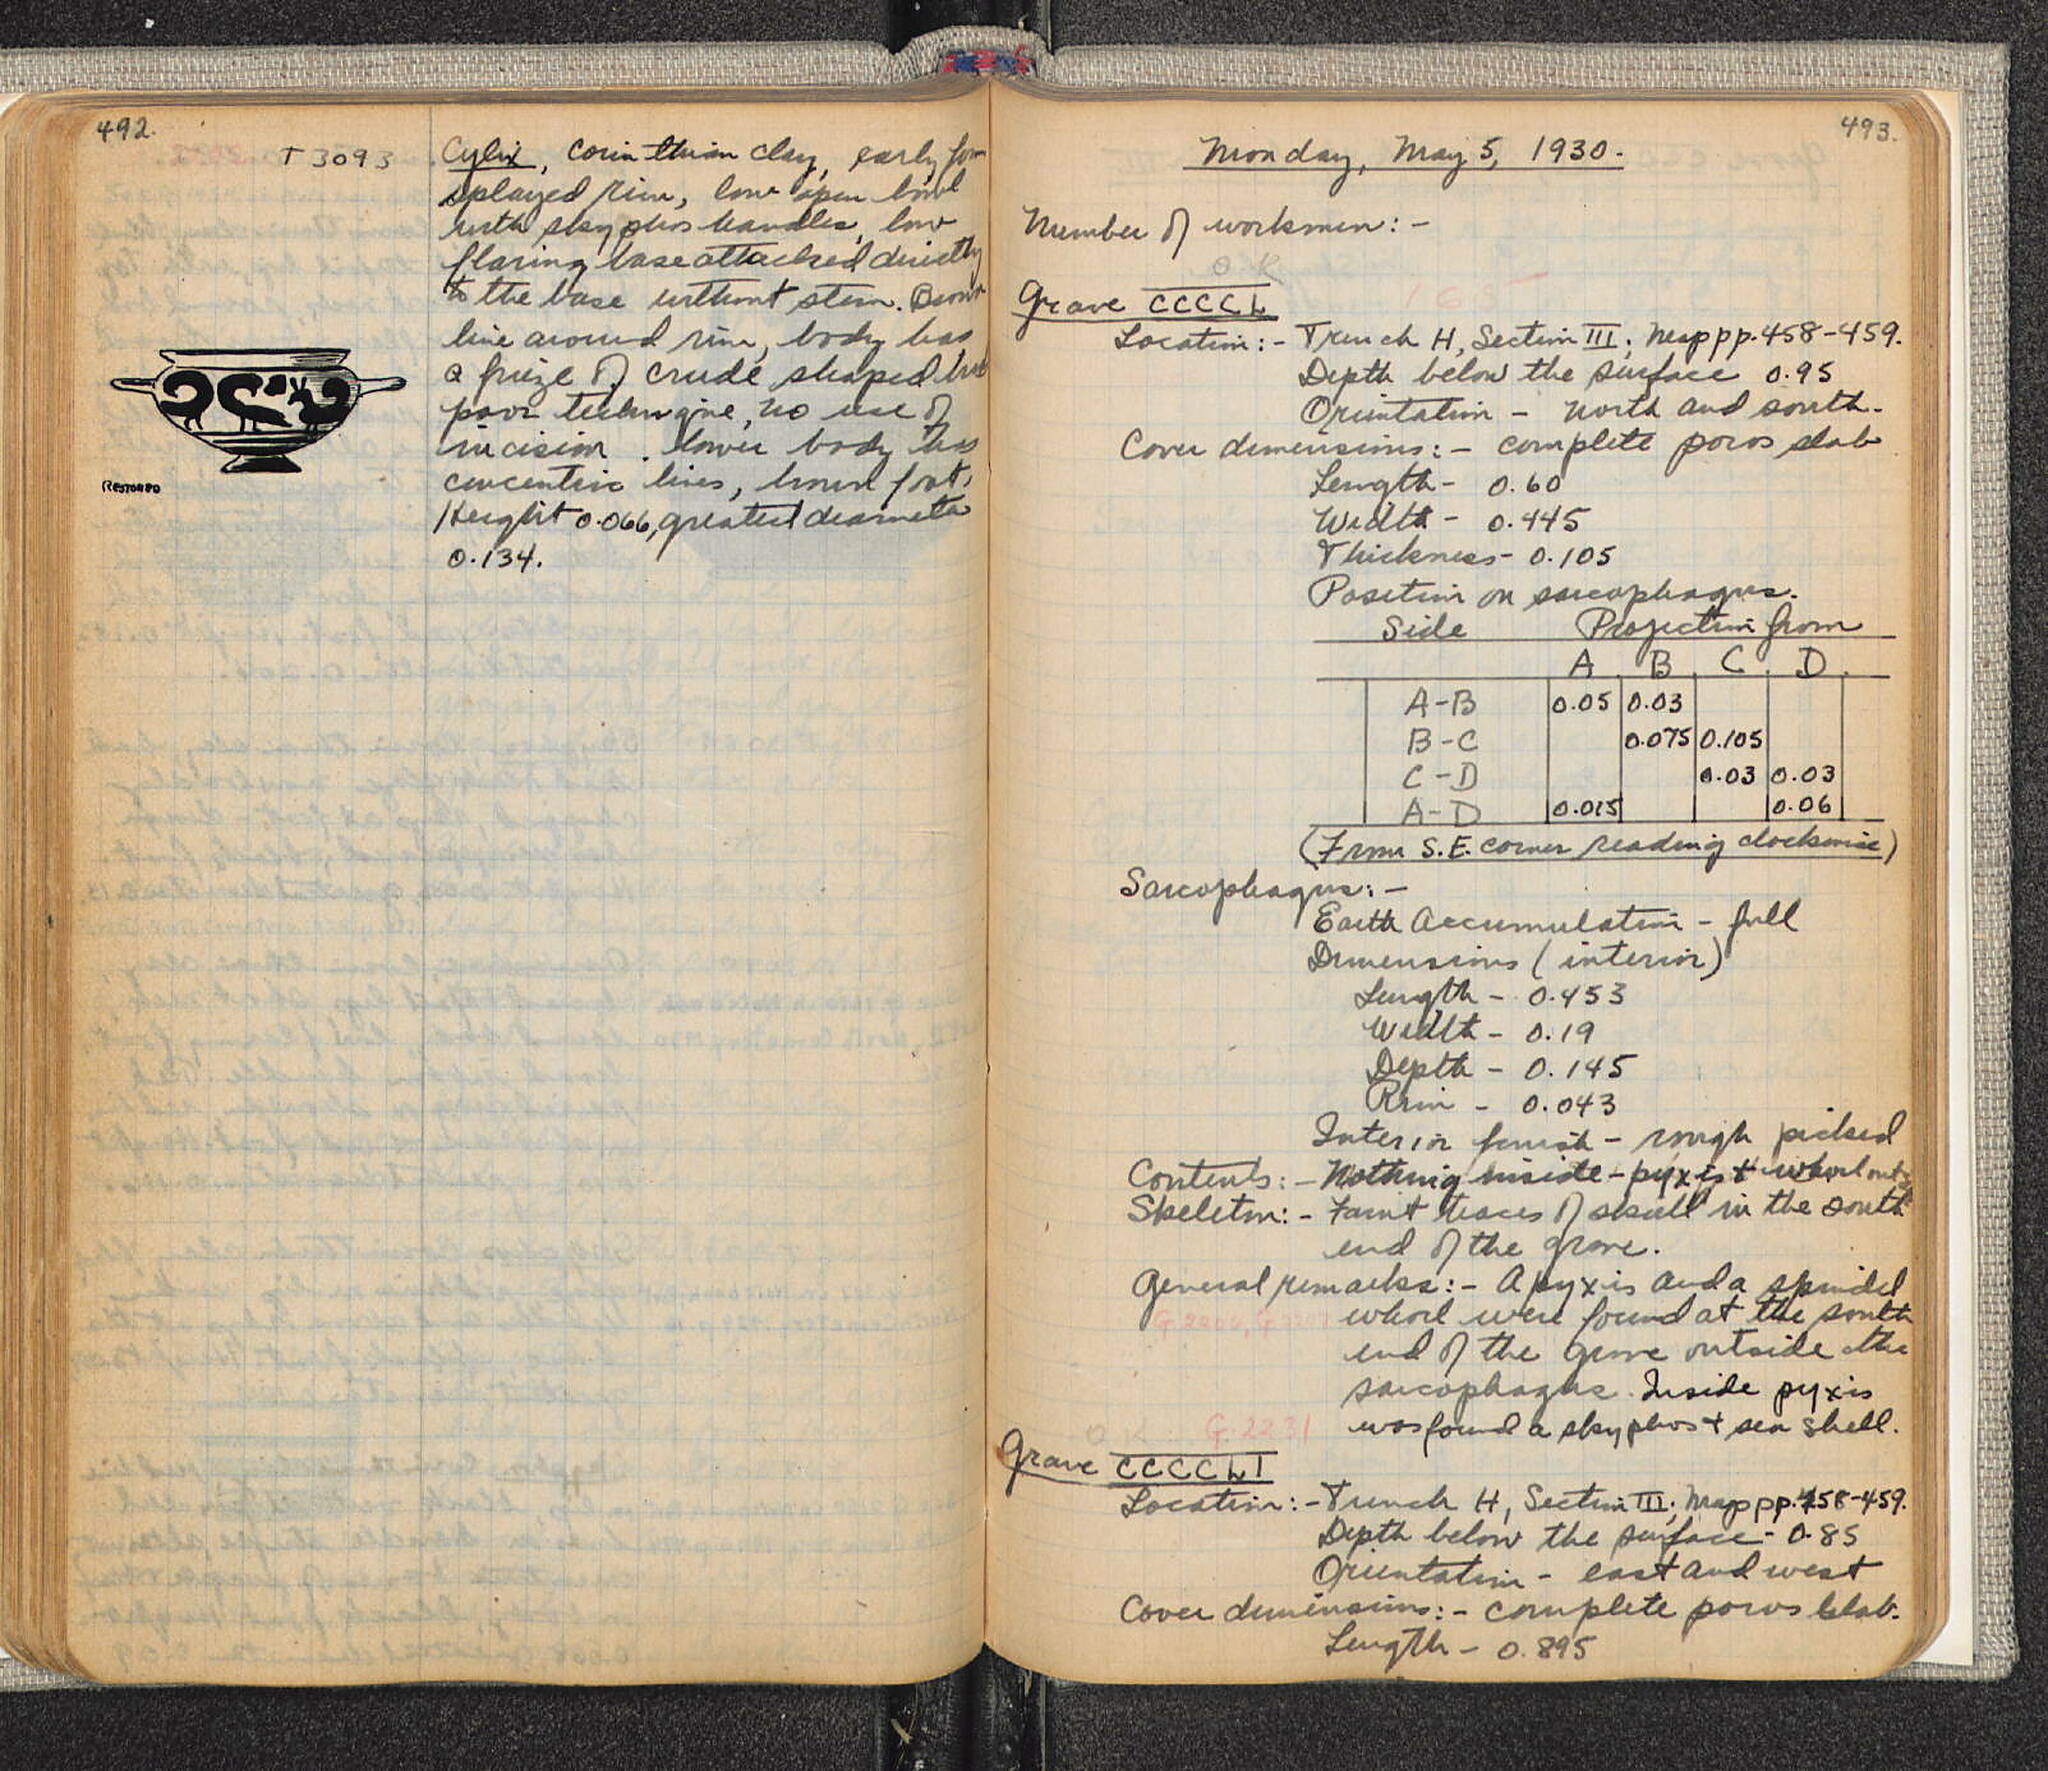 492.
T 3093
Cylix, Corinthian clay, early form
splayed rim, low open bowl
with skyphos handles, low
flaring base attached directly
to the base without stem. Brown
line around rim, body has
a frieze of crude shaped
poor technique, no use of
incision. lower body has
concentric lines, brown foot.
Height 0.066, greatest diameter
0.134.
RESTORED
493.
Monday, May 5, 1930.
Number of workmen: -
O K
Grave CCCCL
Location: - Trench H, Section III; Map pp. 458-459.
Depth below the surface 0.95
Orientation - North and south.
Cover dimensions: - complete poros slab
Length - 0.60
Width - 0.445
Thickness - 0.105
Position on sarcophagus.
Side Projection from
A B C D
A-B 0.05 0.03
B-C 0.075 0.105
C-D 0.03 0.03
A-D 0.015 0.06
(From S.E. corner reading clockwise)
Sarcophagus: -
Earth Accumulation - full
Dimensions (interior)
Length - 0.453
Width - 0.19
Depth - 0.145
Rim - 0.043
Interior finish - rough picked
Contents: - Nothing inside - pyxis + whorl
Skeleton: - Faint traces of skull in the south
end of the grave.
General remarks: - A pyxis and a spindel
whorl were found at the south
end of the grave outside the
sarcophagus. Inside pyxis
was found a skyphos + sea shell.
O K G. 2231
Grave CCCCLI
Location: - Trench H, Section III; Map pp. 458-459.
Depth below the surface - 0.85
Orientation - east and west
Cover dimensions: - complete poros slab.
Length - 0.895